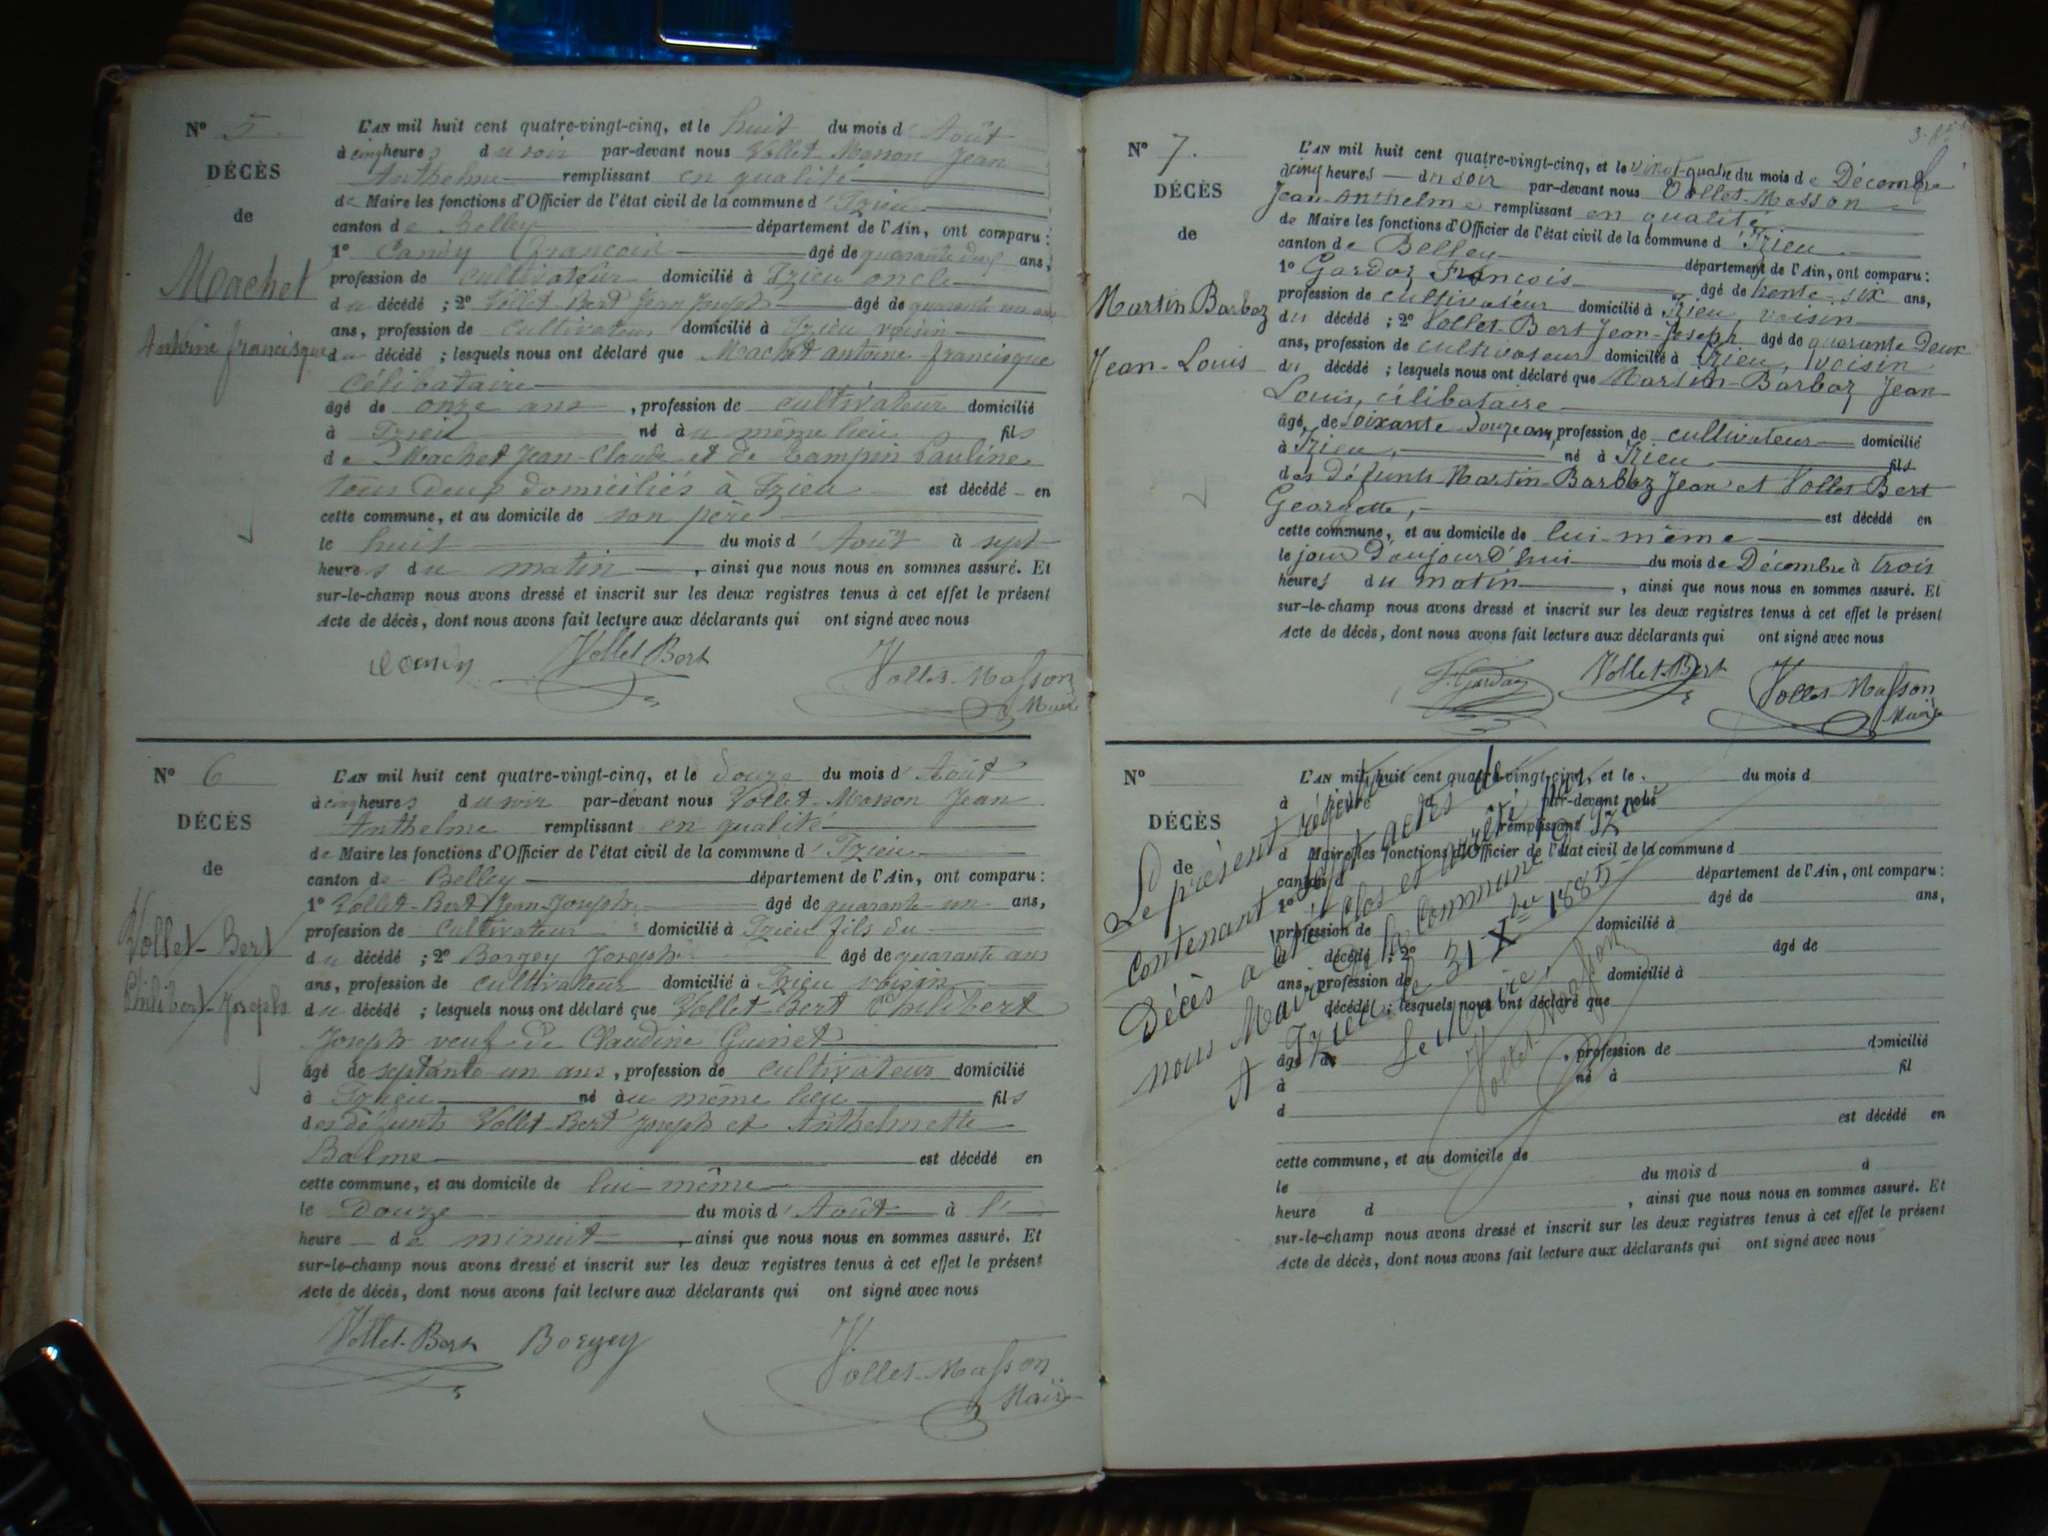 N° 5
DÉCÈS
de
Machet
Antoine francisque
L'AN mil huit cent quatre-vingt-cinq, et le huit du mois d'Août
à cinq heures du soir par-devant nous Vollet-Masson Jean
Anthelme remplissant en qualité
de Maire les fonctions d'Officier de l'état civil de la commune d'Izieu
canton de Belley département de l'Ain, ont comparu :
1° François âgé de quarante deux ans,
profession de cultivateur domicilié à Izieu oncle
du décédé ; 2° Vollet-Bert Jean Joseph âgé de quarante un ans
ans, profession de cultivateur domicilié à Izieu voisin
du décédé ; lesquels nous ont déclaré que Machet antoine francisque
célibataire
âgé de onze ans, profession de cultivateur domicilié
à Izieu né au même lieu fils
de Machet Jean-Claude et de Pauline
tous deux domiciliés à Izieu est décédé en
cette commune, et au domicile de son père
le huit du mois d'Août à sept
heures du matin, ainsi que nous nous en sommes assuré. Et
sur-le-champ nous avons dressé et inscrit sur les deux registres tenus à cet effet le présent
Acte de décès, dont nous avons fait lecture aux déclarants qui ont signé avec nous
Vollet Bert Vollet-Masson
Maire
N° 6
DÉCÈS
de
Vollet-Bert
Philibert-Joseph
L'AN mil huit cent quatre-vingt-cinq, et le douze du mois d'Août
à cinq heures du soir par-devant nous Vollet-Masson Jean
Anthelme remplissant en qualité
de Maire les fonctions d'Officier de l'état civil de la commune d'Izieu
canton de Belley département de l'Ain, ont comparu :
1° Vollet-Bert Jean-Joseph âgé de quarante-un ans,
profession de cultivateur domicilié à Izieu fils du
du décédé ; 2° Borgey Joseph âgé de quarante ans
ans, profession de cultivateur domicilié à Izieu voisin
du décédé ; lesquels nous ont déclaré que Vollet-Bert Philibert
Joseph veuf de Claudine Guinet
âgé de septante-un ans, profession de cultivateur domicilié
à Izieu né au même lieu fils
des défunts Vollet-Bert Joseph et Anthelmette
Balme est décédé en
cette commune, et au domicile de lui-même
le douze du mois d'Août à l'
heure de minuit, ainsi que nous nous en sommes assuré. Et
sur-le-champ nous avons dressé et inscrit sur les deux registres tenus à cet effet le présent
Acte de décès, dont nous avons fait lecture aux déclarants qui ont signé avec nous
Vollet-Bert Borgey Vollet-Masson
Maire
N° 7.
DÉCÈS
de
Martin Barbaz
Jean-Louis
L'AN mil huit cent quatre-vingt-cinq, et le vingt-quatre du mois de Décembre
à cinq heures du soir par-devant nous Vollet-Masson
Jean-Anthelme remplissant en qualité
de Maire les fonctions d'Officier de l'état civil de la commune d'Izieu
canton de Belley département de l'Ain, ont comparu :
1° Gardaz François âgé de trente-six ans,
profession de cultivateur domicilié à Izieu, voisin
du décédé ; 2° Vollet-Bert Jean-Joseph âgé de quarante Deux
ans, profession de cultivateur domicilié à Izieu, voisin
du décédé ; lesquels nous ont déclaré que Martin-Barbaz Jean
Louis, célibataire
âgé, de soixante douze ans, profession de cultivateur domicilié
à Izieu, né à Izieu fils
des défunts Martin-Barbaz Jean et Vollet-Bert
Georgette, est décédé en
cette commune, et au domicile de lui-même
le jour d'aujourd'hui du mois de Décembre à trois
heures du matin, ainsi que nous nous en sommes assuré. Et
sur-le-champ nous avons dressé et inscrit sur les deux registres tenus à cet effet le présent
Acte de décès, dont nous avons fait lecture aux déclarants qui ont signé avec nous
F. Gardaz Vollet-Bert Vollet-Masson
Maire
N°
DÉCÈS
de
L'AN mil huit cent quatre-vingt-cinq, et le du mois d
à heure d par-devant nous
remplissant
d Maire les fonctions d'Officier de l'état civil de la commune d
canton d département de l'Ain, ont comparu :
1° âgé de ans,
profession de domicilié à
d décédé ; 2° âgé de
ans, profession de domicilié à
d décédé ; lesquels nous ont déclaré que
âgé de , profession de domicilié
à né à fil
d est décédé en
cette commune, et au domicile de
le du mois d à
heure d , ainsi que nous nous en sommes assuré. Et
sur-le-champ nous avons dressé et inscrit sur les deux registres tenus à cet effet le présent
Acte de décès, dont nous avons fait lecture aux déclarants qui ont signé avec nous
Le présent registre
contenant sept actes de
Décès a été clos et arrêté par
nous Maire de la commune d'Izieu
A Izieu le 31 Xbre 1885
Le Maire,
Vollet-Masson